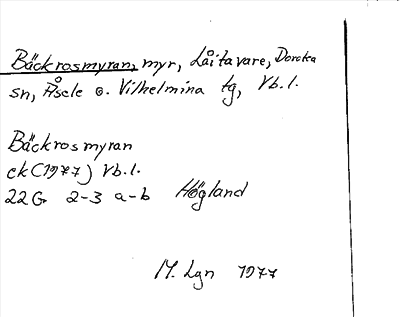 Bäckrosmyran, myr, Låitavare, Dorotea
sn, Åsele o. Vilhelmina tg, Vb.l.
Bäckrosmyran
ek (1977) Vb.l.
22G 2-3 a-b Högland
M. Lgn 1977